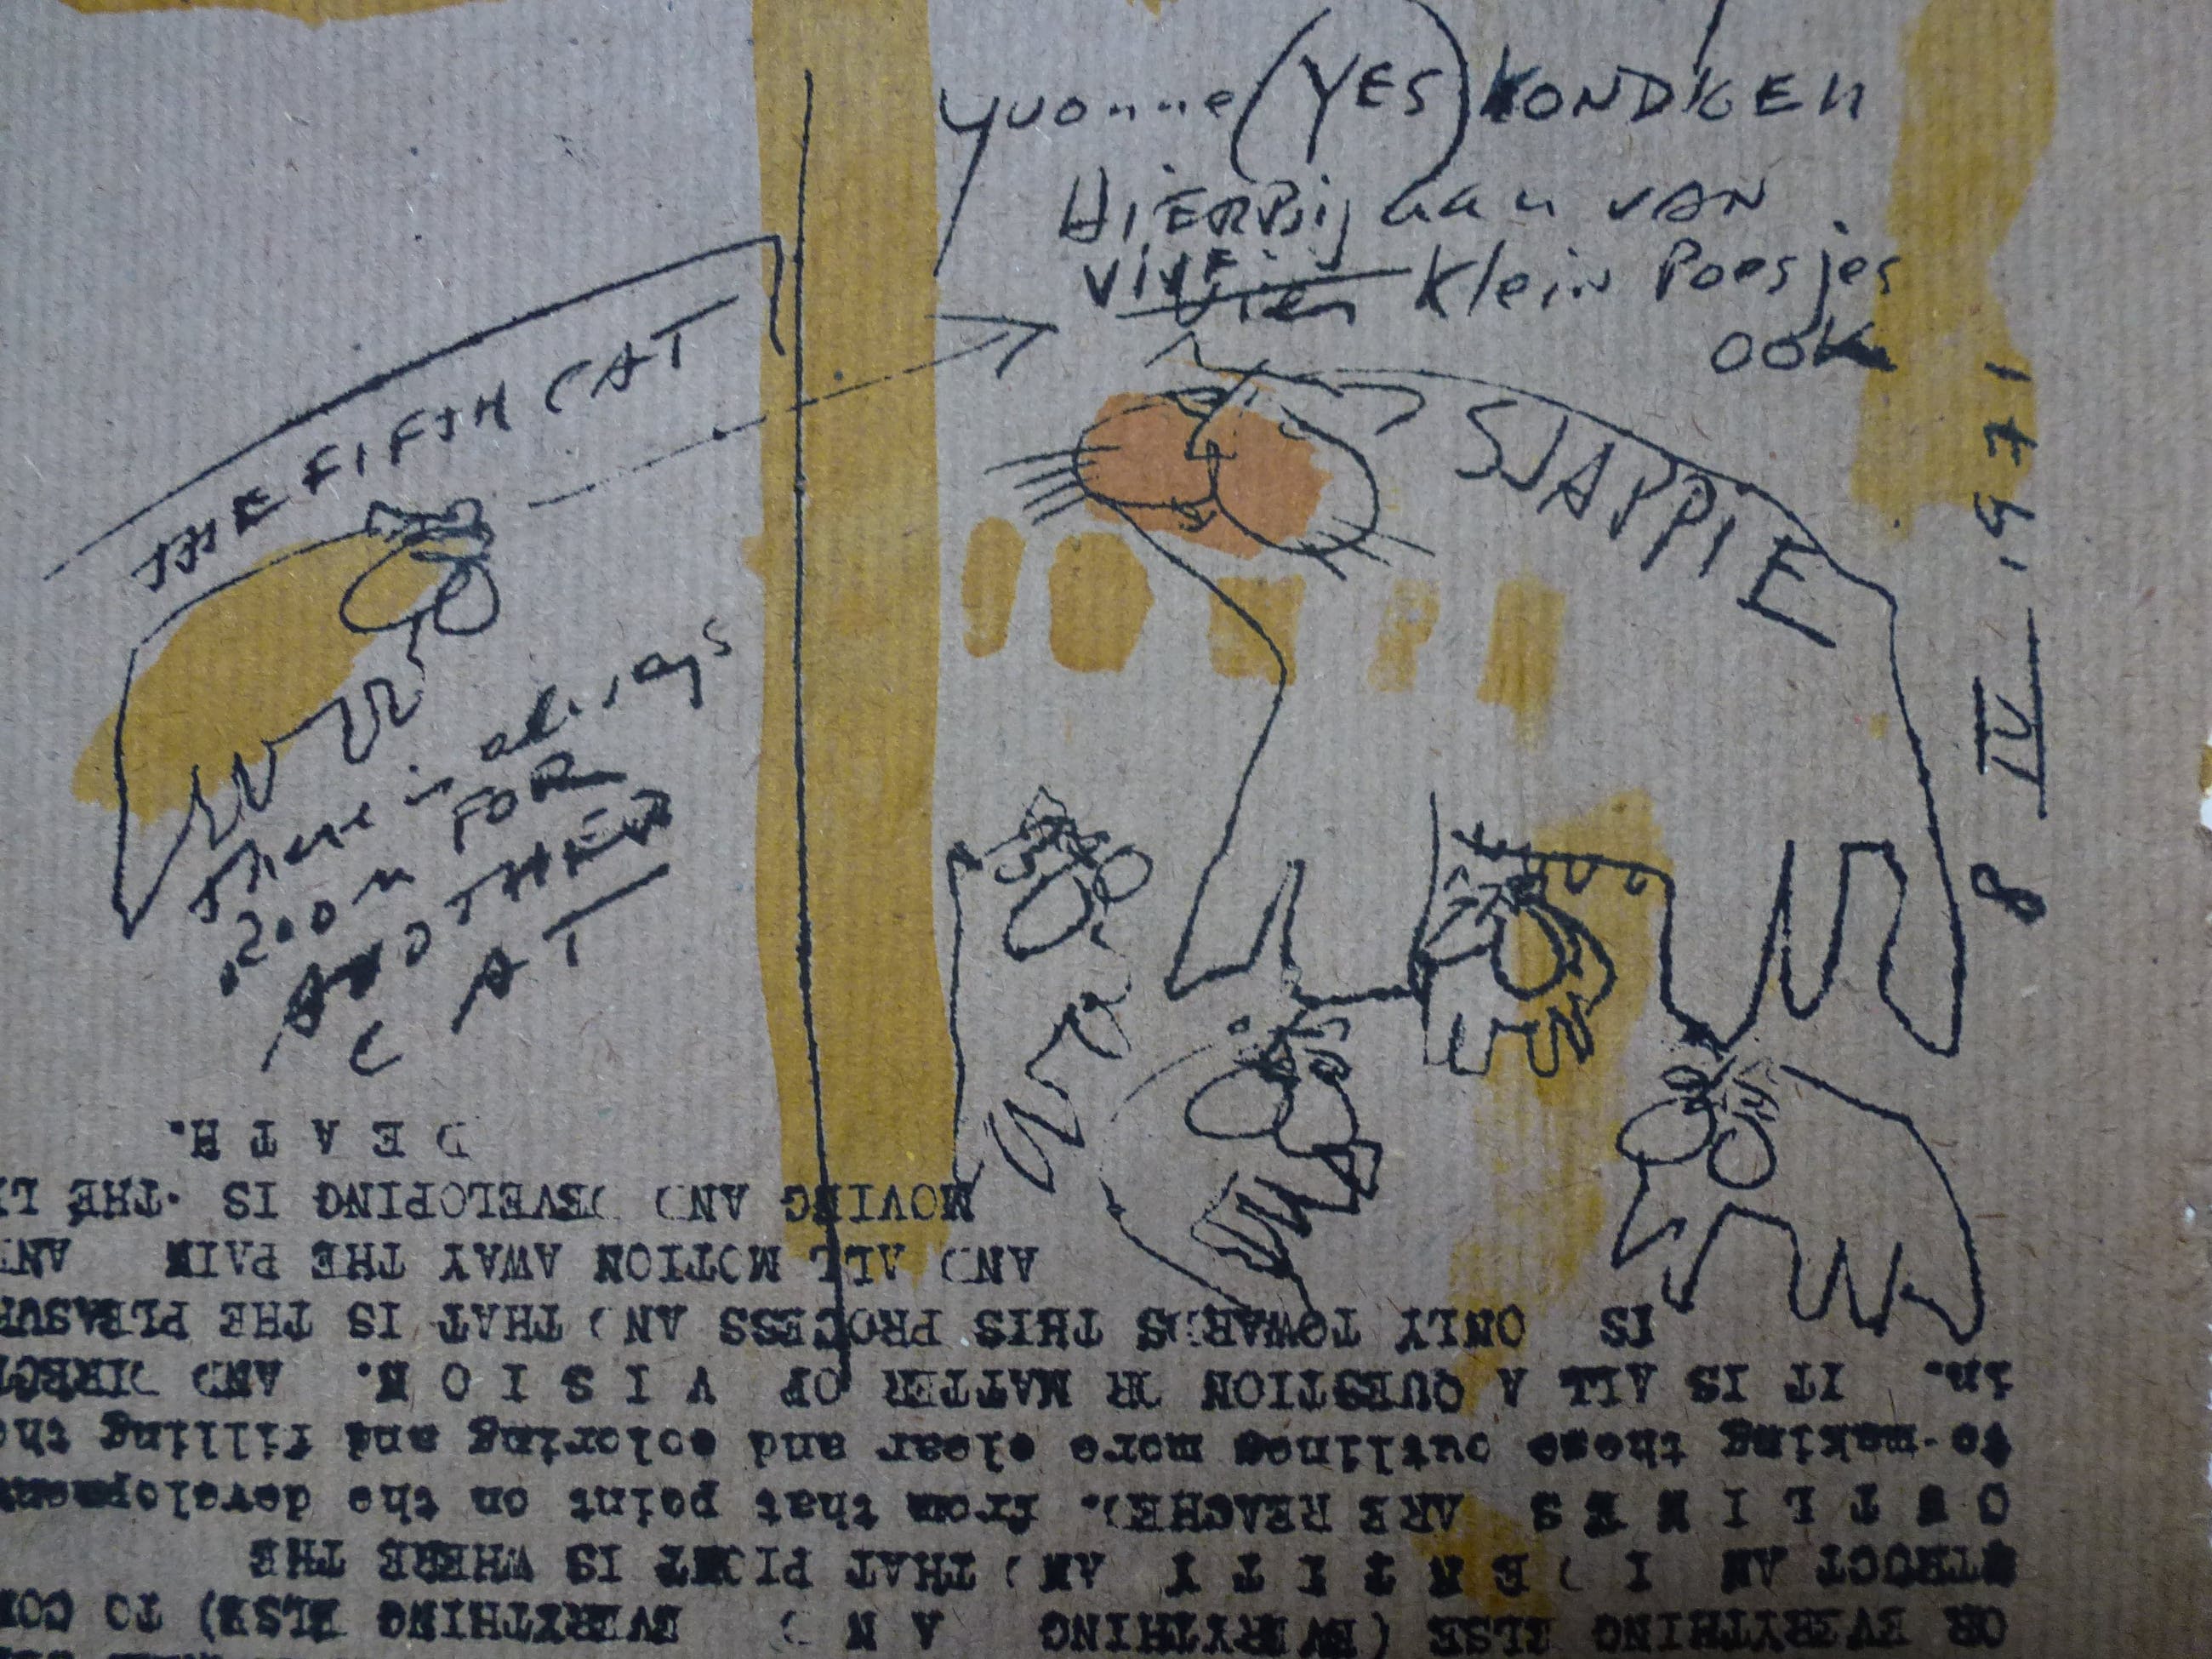 Yvonne (YES) KONDKEN
HiERBij aan VAN
VIJF vier Klein Poesjes
OOK
SJAPPIE
8 IV 1971
THE FIFTH CAT
There is always
ROOM FOR
ANOTHER
CAT
OR EVERYTHING ELSE (EVERYTHING A N D EVERYTHING ELSE) TO CON
STRUCT AN I D E N T I T Y AND THAT PIONT IS WHERE THE
O U T L I N E S ARE REACHED. from that point on the development
to making these outlines more clear and coloring and filling the
in. IT IS ALL A QUESTION OR MATTER OF V I S I O N. AND DIRECT
IS ONLY TOWARDS THIS PROCESS AND THAT IS THE PLEASUR
AND ALL MOTION AWAY THE PAIN AN
MOVING AND DEVELOPING IS THE LI
D E A T H.